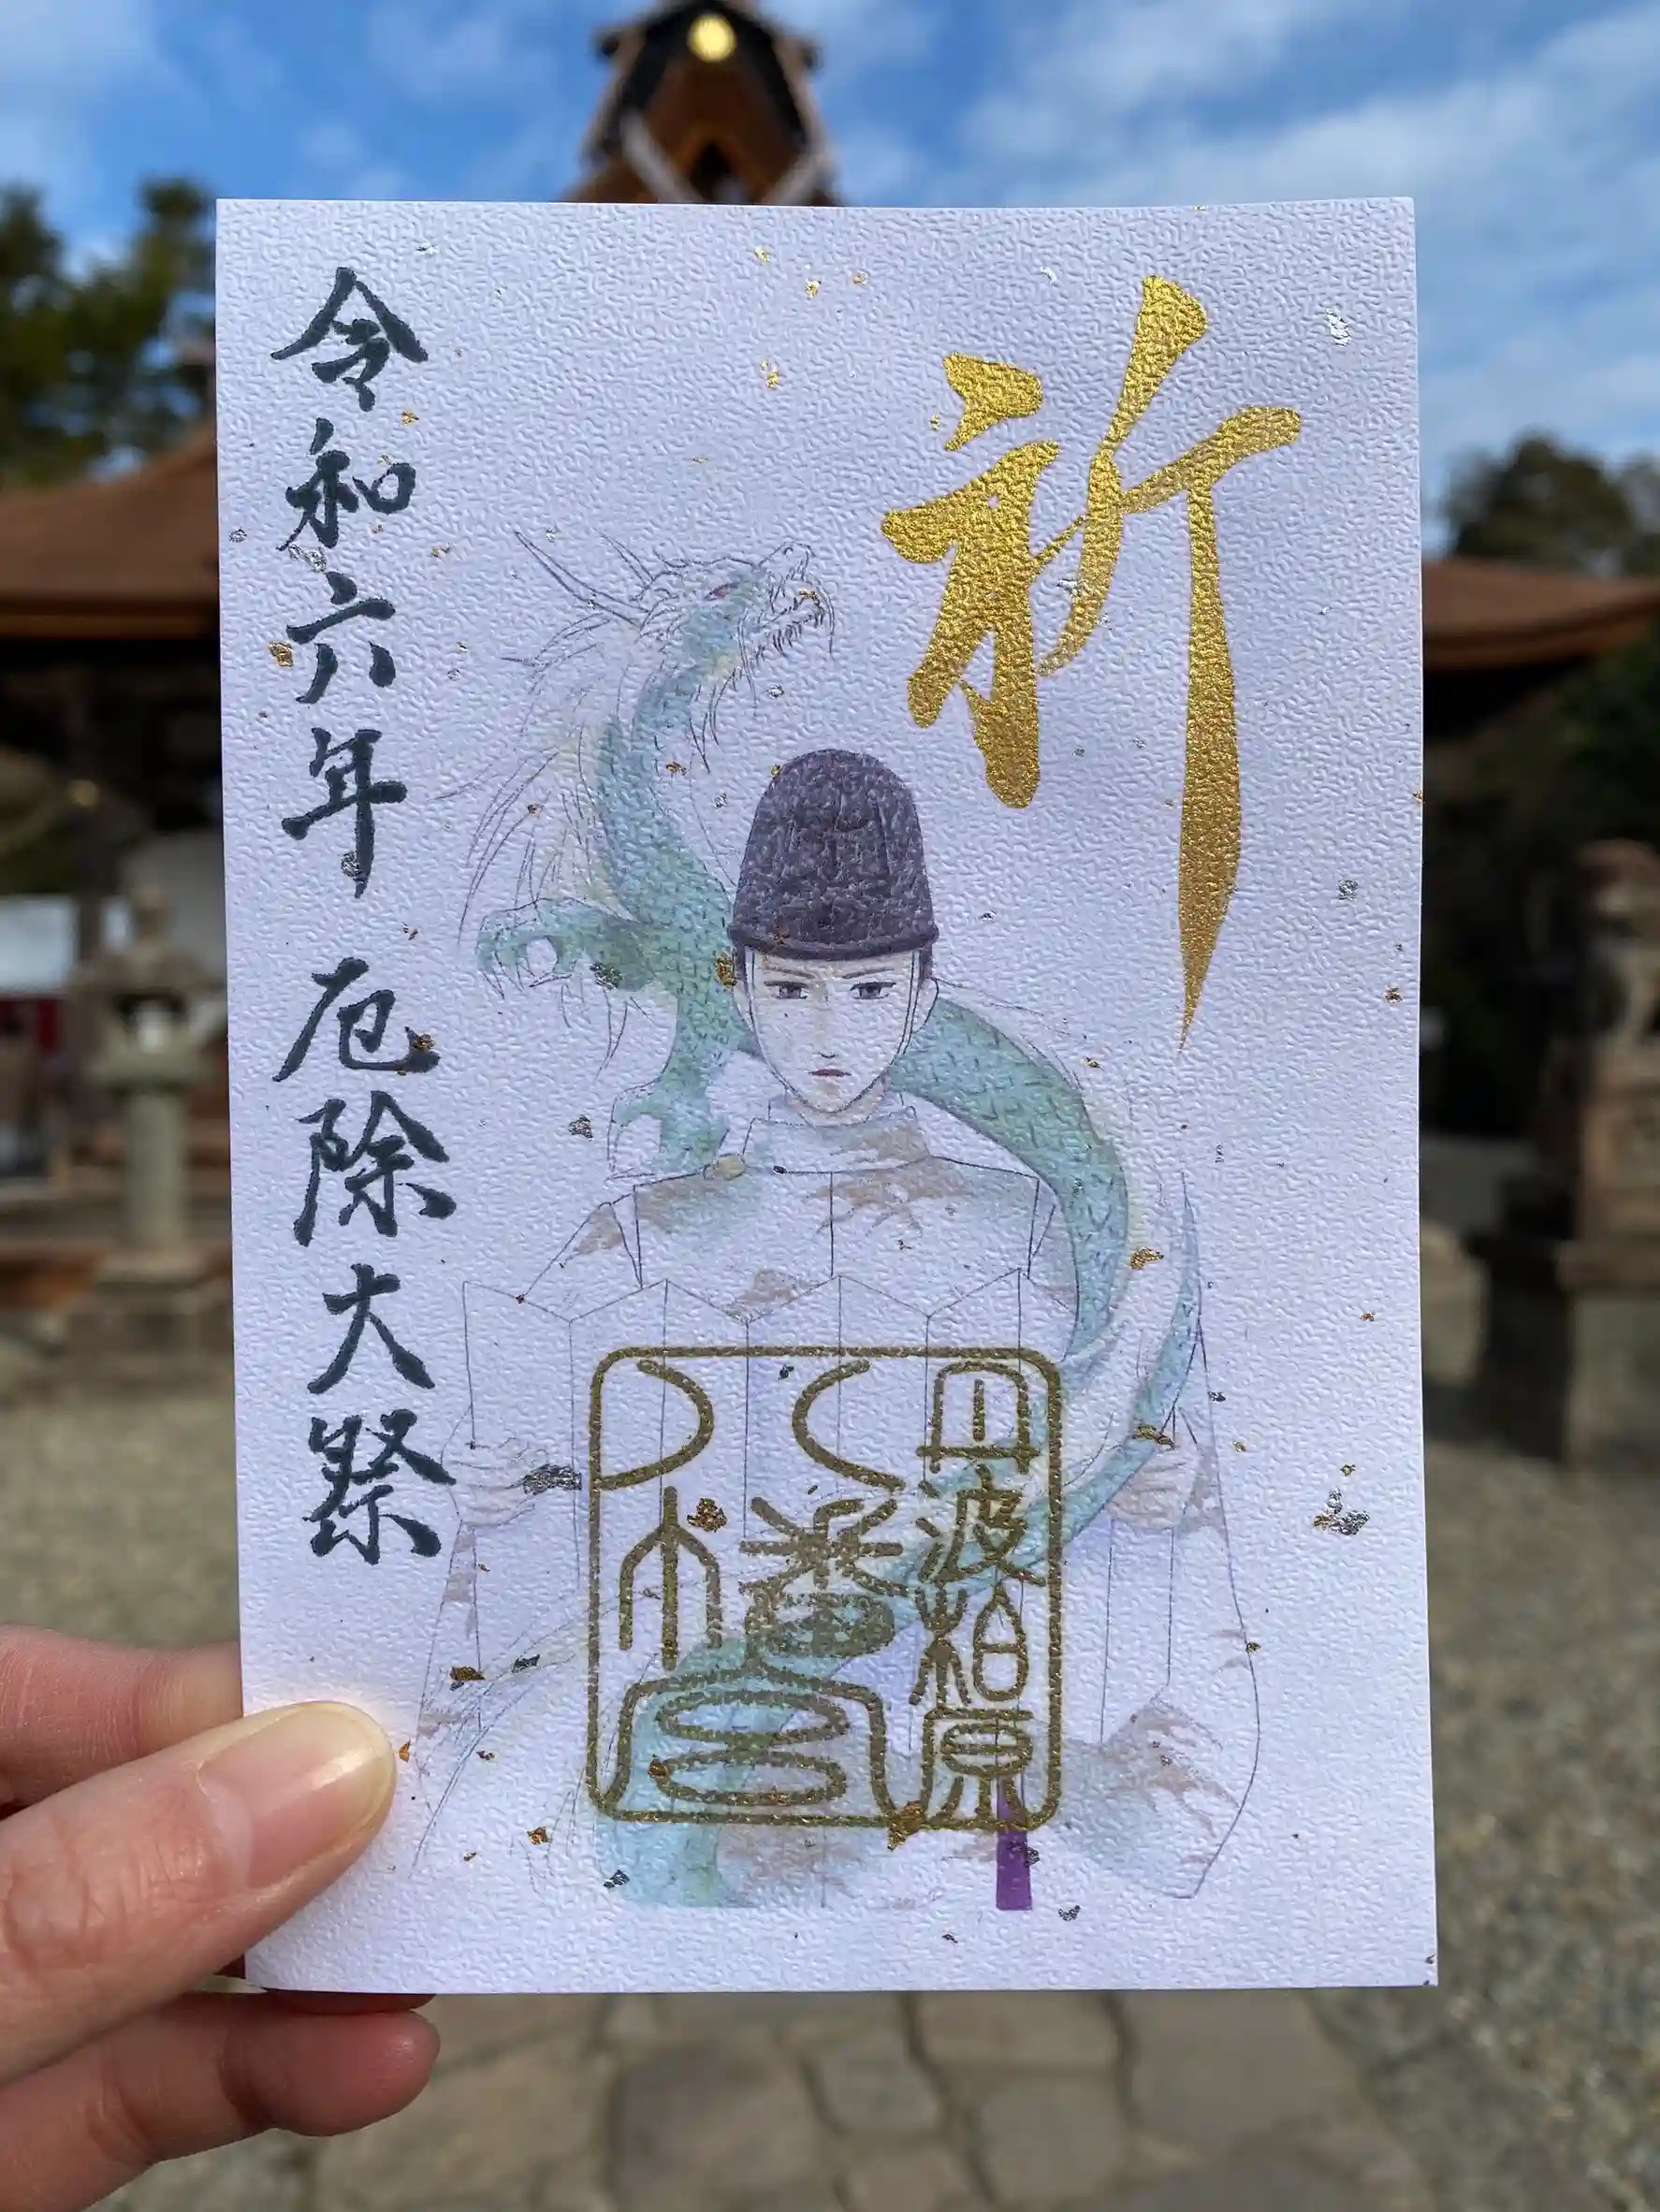 祈
丹波柏原
八幡宮
之印
令和六年 厄除大祭